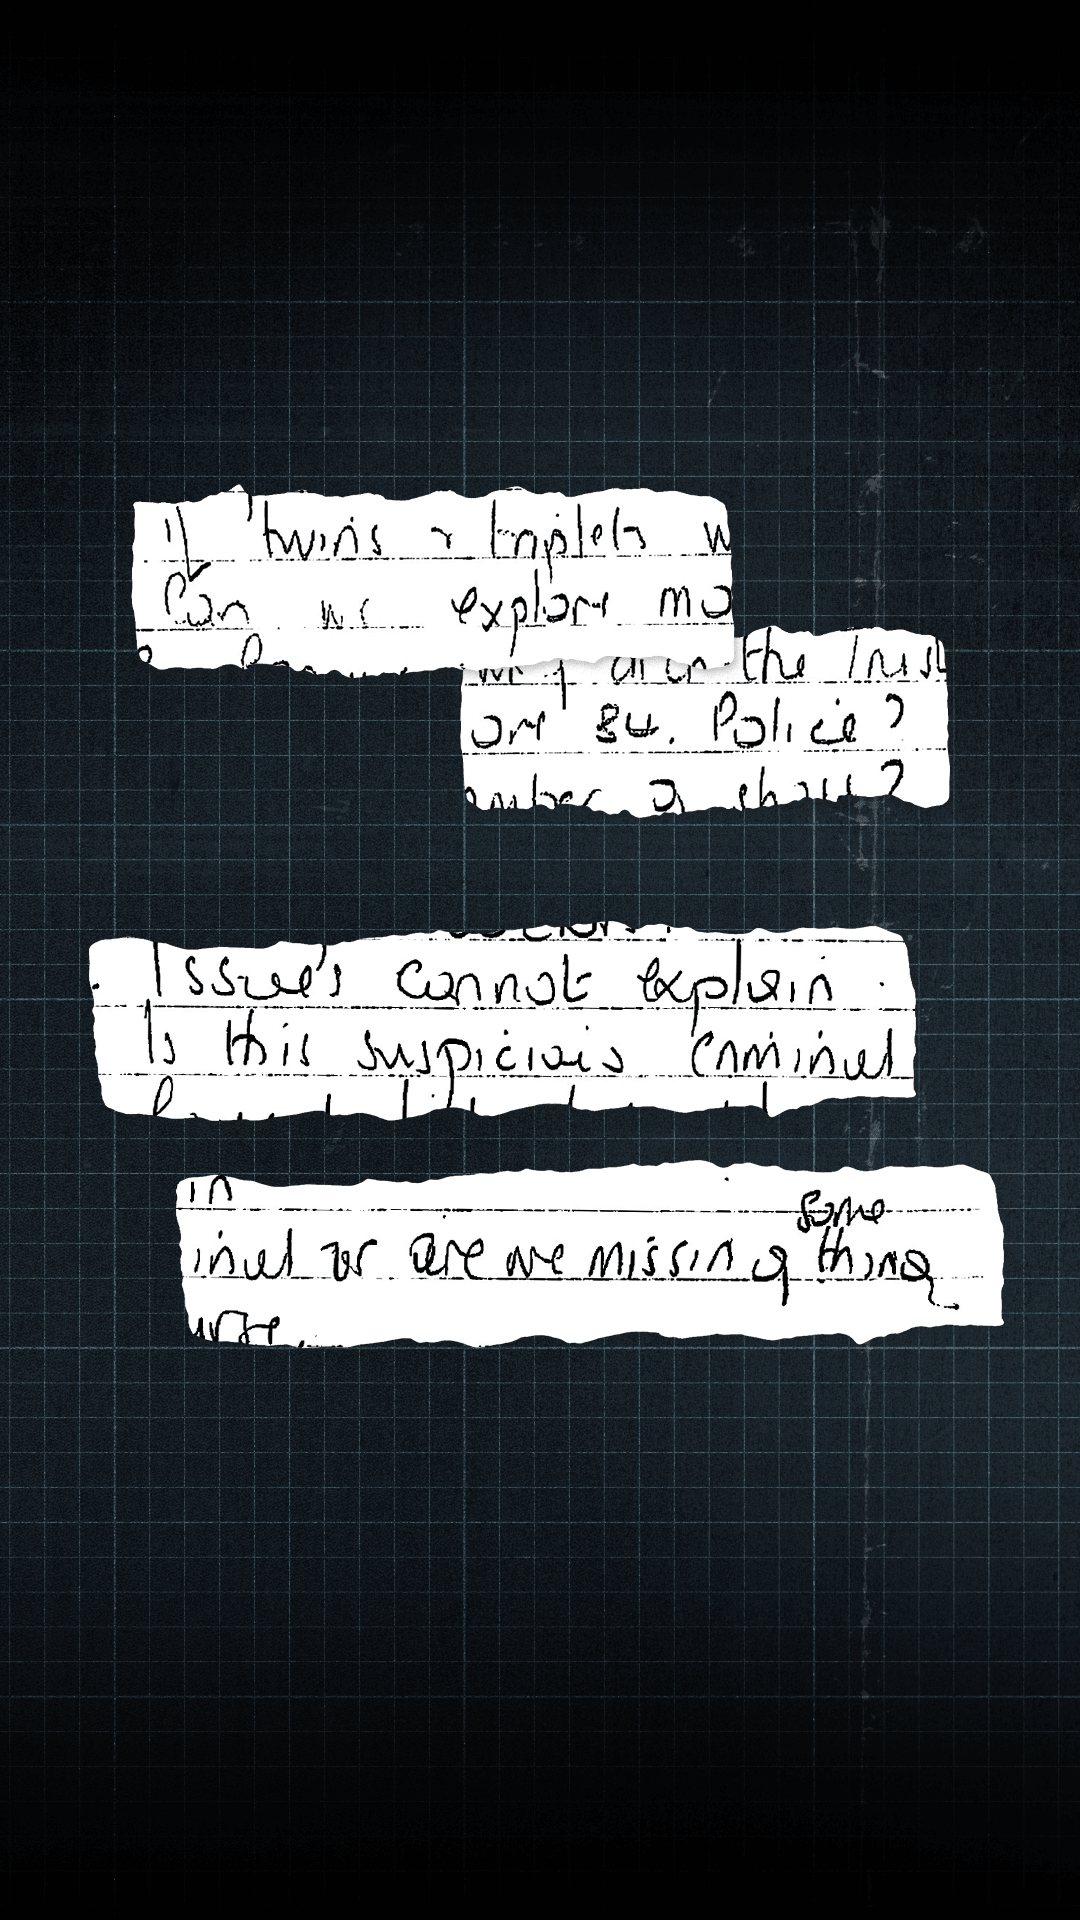 if twins & triplets w
Can we explore mo
the Trust
are 84. Police?
Issue's cannot explain.
Is this suspicious criminal
in
some
inal or are we missing thing